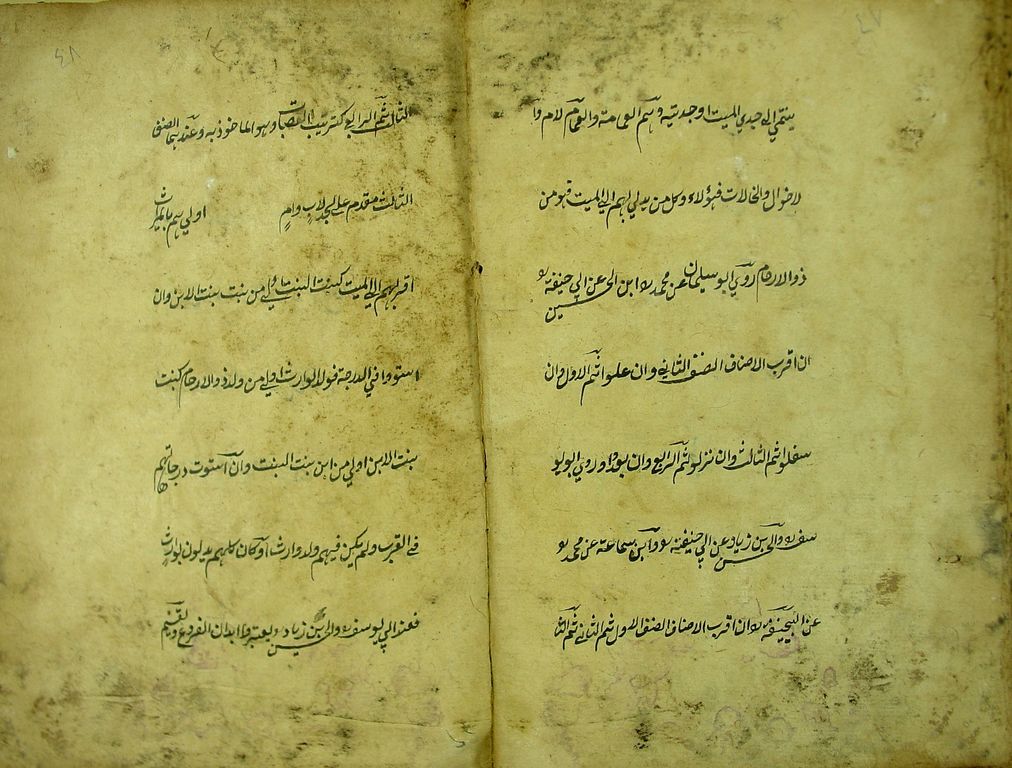 ٤٧
ينتمي الى جدي الميت او جدتيه وهم العمات والاعمام لام وا
لاخوال والخالات فهؤلاء وكل من يدلي بهم الى الميت فهو من
ذوالارحام روي ابو سليمان عن محمد ره ابن الحسن عن ابي حنيفة ره
ان اقرب الاصناف الصنف الثاني وان علوا ثم الاول وان
سفلوا ثم الثالث وان نزلوا ثم الرابع وان بعدوا وروي ابو يو
سف ره والحسن بن زياد عن ابي حنيفة ره وابن سماعة عن محمد ره
عن ابيحنيفة ره ان اقرب الاصناف الصنف الاول ثم الثاني ثم الثا
٤٨
الثالث ثم الرابع كترتيب العصبات وهو الماخوذ به وعندهما الصنف
الثالث مقدم على الجد لاب وام اولي هم بالميراث
اقربهم الى الميت كبنت البنت اولي من بنت بنت الابن وان
استووا في الدرجة فولد الوارث اولي من ولد ذوالارحام كبنت
بنت الابن اولي من ابن بنت البنت وان استوت درجاتهم
في القرب ولم يكن فيهم ولد وارث او كان كلهم يدلون بوارث
فعند ابي يوسف ره والحسن بن زياد يعتبر ابدان الفروع ويقسم